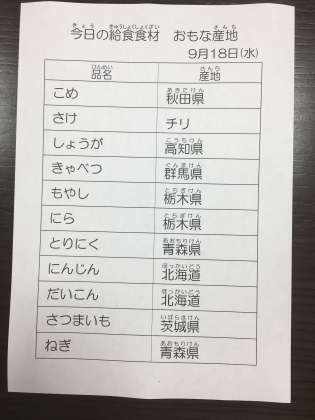 今日の給食食材　おもな産地
9月18日(水)
品名　産地
こめ　秋田県
さけ　チリ
しょうが　高知県
きゃべつ　群馬県
もやし　栃木県
にら　栃木県
とりにく　青森県
にんじん　北海道
だいこん　北海道
さつまいも　茨城県
ねぎ　青森県